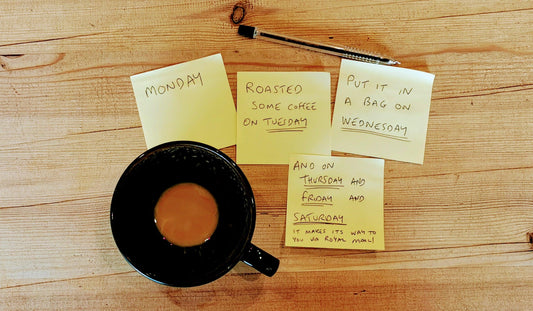 MONDAY
ROASTED
SOME COFFEE
ON TUESDAY
PUT IT IN
A BAG ON
WEDNESDAY
AND ON
THURSDAY AND
FRIDAY AND
SATURDAY
IT MAKES ITS WAY TO
YOU VIA ROYAL MAIL!